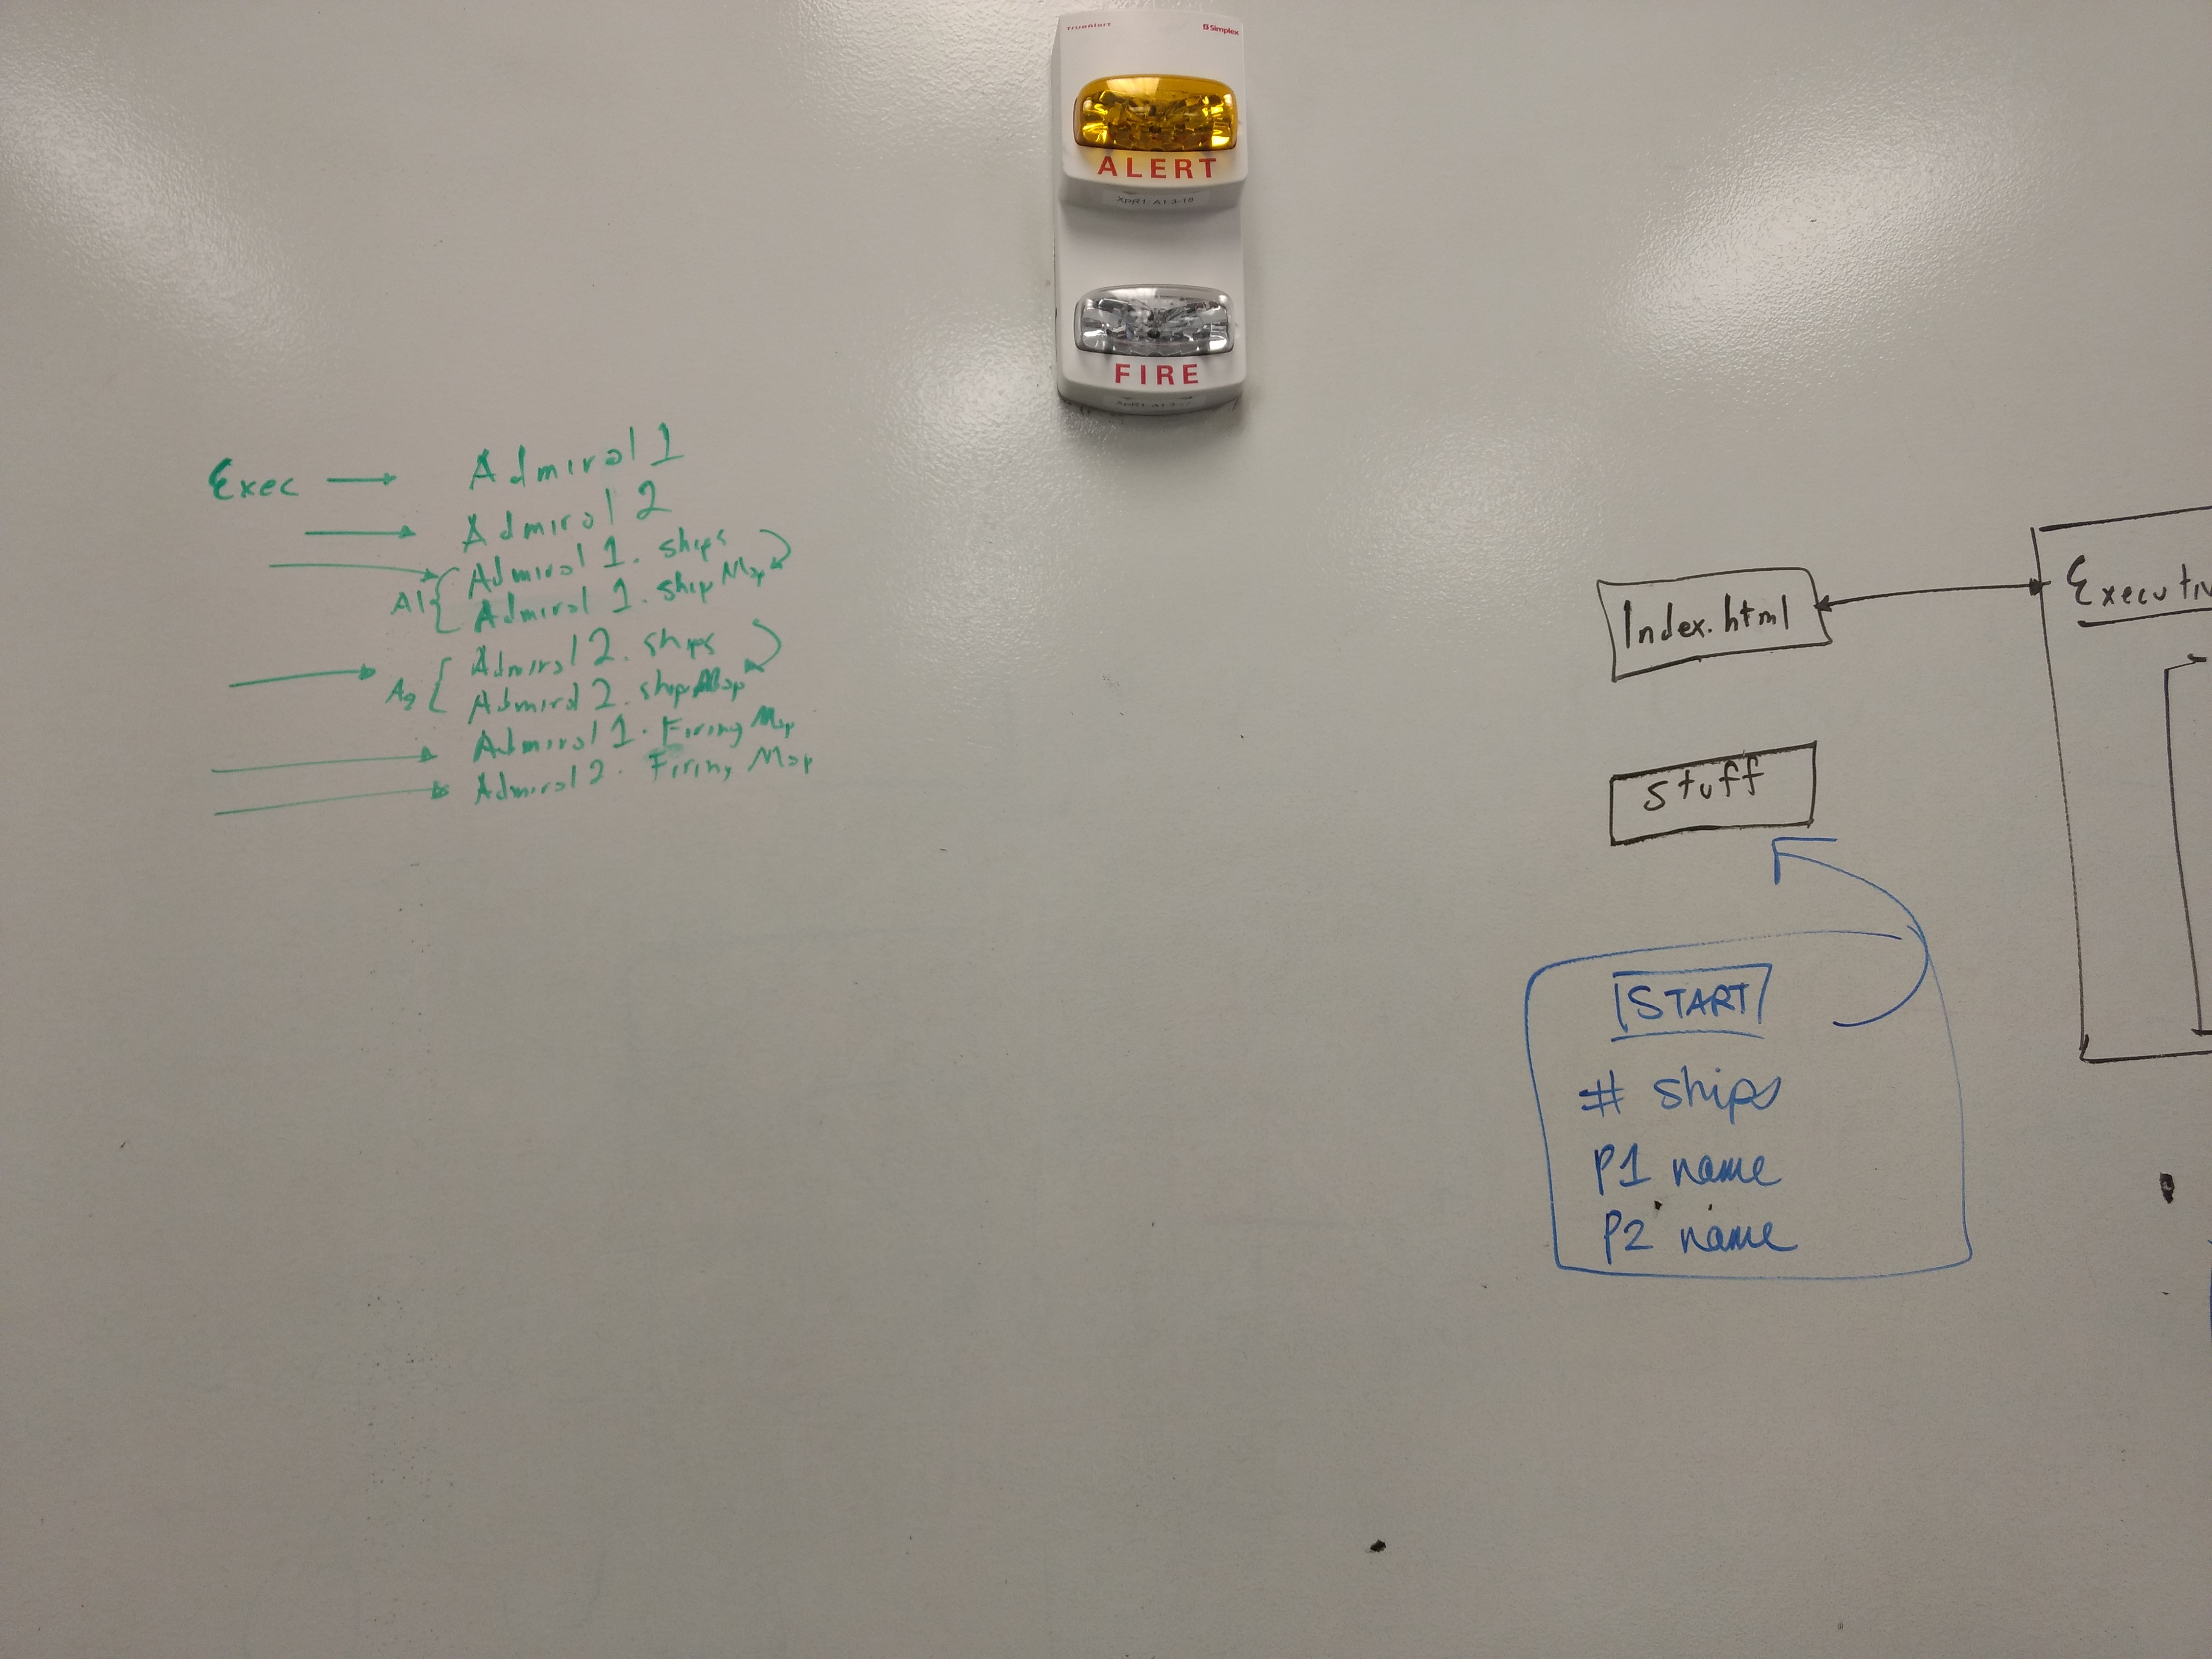 TrueAlert
Simplex
ALERT
XpR1: A1-3-18
FIRE
Exec → Admiral 1
→ Admiral 2
→ A1 { Admiral 1. ships
Admiral 1. ship Map
→ A2 { Admiral 2. ships
Admiral 2. ship Map
→ Admiral 1. Firing Map
→ Admiral 2. Firing Map
Index.html
Executiv
stuff
START
# ships
P1 name
P2 name